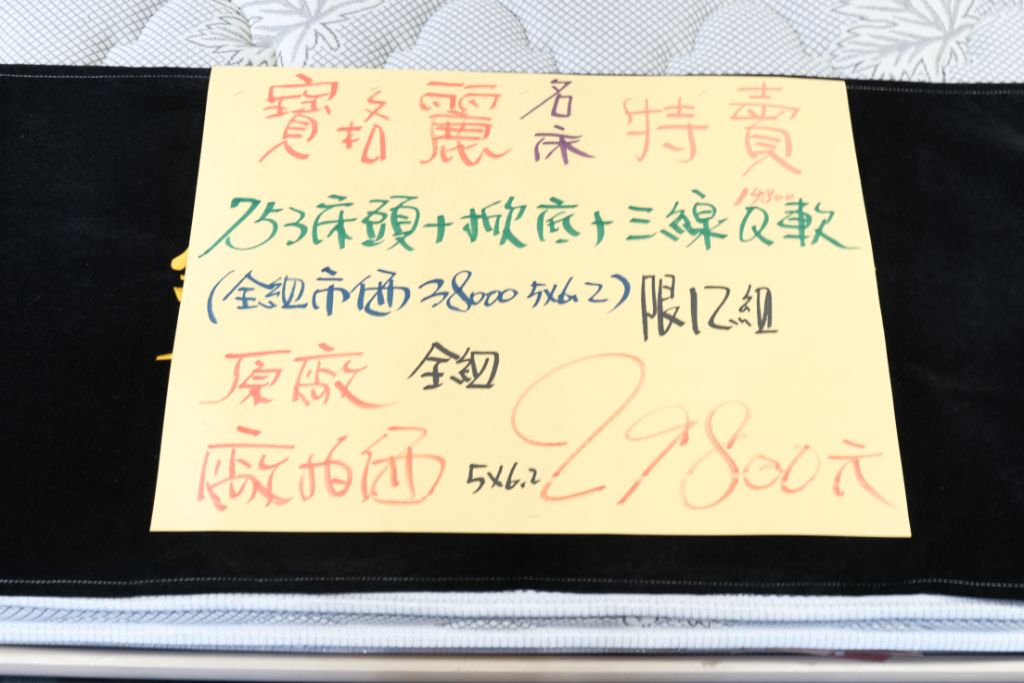 寶格麗名床特賣
14800
753床頭+掀底+三線Q軟
(全組市価38000 5X6.2) 限12組
頂廠 全組
廠拍価 5X6.2 29800元